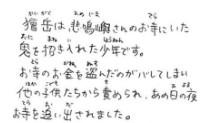 獪岳は、悲鳴嶼さんのお寺にいた
鬼を招き入れた少年です。
お寺のお金を盗んだのがバレてしまい
他の子供たちから責められ、あの日の夜
お寺を追い出されました。